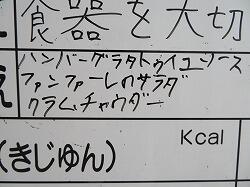 食器を大切
ハンバーグラタトゥイユソース
ファンファーレのサラダ
クラムチャウダー
Kcal
(きじゅん)